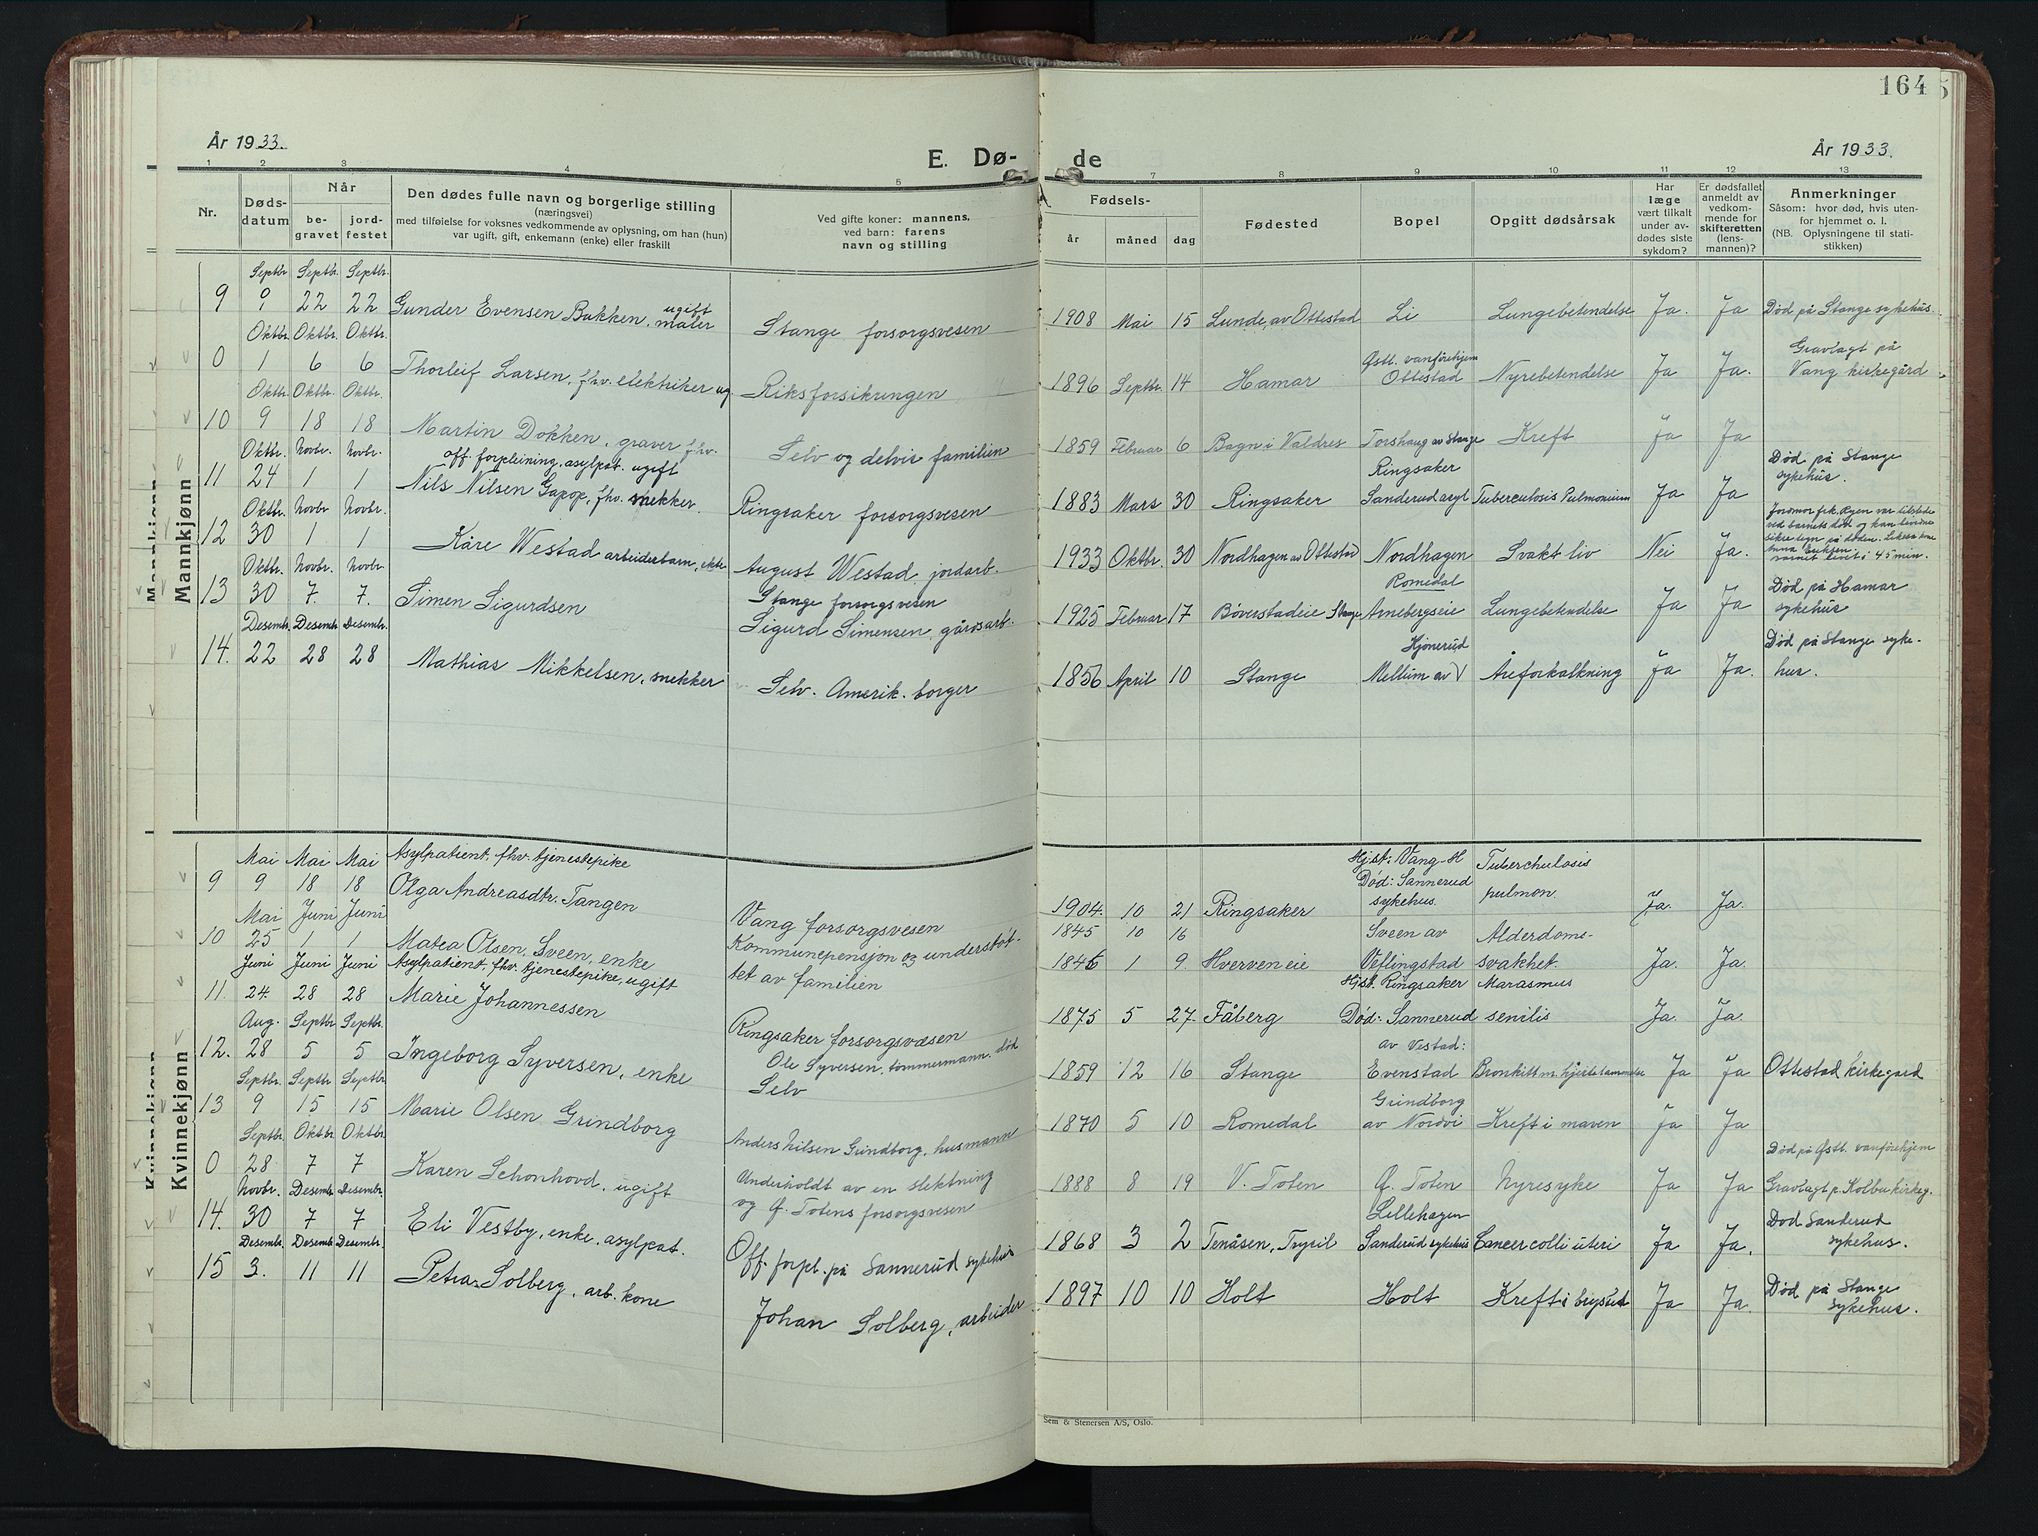 164
År 1933.
E. Dø-
de
År 1933.
1 2 3 4 5 7 8 9 10 11 12 13
Nr.
Døds-
datum
Når
be-
gravet
jord-
festet
Den dødes fulle navn og borgerlige stilling
(næringsvei)
med tilføielse for voksnes vedkommende av oplysning, om han (hun)
var ugift, gift, enkemann (enke) eller fraskilt
Ved gifte koner: mannens,
ved barn: farens
navn og stilling
Fødsels-
år
måned
dag
Fødested
Bopel
Opgitt dødsårsak
Har
læge
vært tilkalt
under av-
dødes siste
sykdom?
Er dødsfallet
anmeldt av
vedkom-
mende for
skifteretten
(lens-
mannen)?
Anmerkninger
Såsom: hvor død, hvis uten-
for hjemmet o. l.
(NB. Oplysningene til stati-
stikken)
Mannkjønn
Septbr. Septbr. Septbr.
9 9 22 22 Gunder Evensen Bakken, ugift maler Stange forsorgsvesen 1908 Mai 15 Lunde, av Ottestad Li Lungebetendelse Ja. Ja Død på Stange sykehus.
Oktbr. Oktbr. Oktbr.
0 1 6 6 Thorleif Larsen, fhv. elektriker ug. Riksforsikringen 1896 Septbr. 14 Hamar Østl. vanførehjem Ottestad Nyrebetendelse Ja Ja. Gravlagt på Vang kirkegård
Oktbr. Oktbr. Oktbr.
10 9 18 18 Martin Dokken, graver fhv. Selv og delvis familien 1859 Februar 6 Bagn i Valdres Torshaug av Stange Kreft Ja Ja
Oktbr. Novbr. Novbr. off. forpleining, asylpat. ugift
11 24 1 1 Nils Nilsen Gapop, fhv. snekker. Ringsaker forsorgsvesen 1883 Mars 30 Ringsaker Ringsaker Sanderud asyl Tuberculosis Pulmonium Ja Ja Død på Stange sykehus.
Oktbr. Novbr Novbr.
12 30 1 1 Kåre Westad arbeiderbarn, ekte August Westad, jordarb. 1933 Oktbr. 30 Nordhagen av Ottestad Nordhagen Svakt liv Nei Ja. Jormor frk. Ryen var tilstede
ved barnets død og kan bevidne
sikre tegn på døden.
barnet levet i 45 min.
Oktbr. Novbr. Novbr
13 30 7. 7. Simen Sigurdsen Stange forsorgsvesen
Sigurd Simensen, gårdsarb. 1925 Februar 17 Böverstadeie Stange Romedal Arnebergseie Lungebetendelse Ja Ja Død på Hamar sykehus
Desembr. Desembr. Desembr.
14. 22 28 28 Mathias Mikkelsen, snekker Selv. Amerik. borger 1856 April 10 Stange Hjønerud Mellum av Åreforkalkning Ja Ja. Død på Stange sykehus.
Kvinnekjønn
Mai Mai Mai Asylpatient, fhv. tjenestepike
9 9 18 18 Olga Andreasdtr. Tangen Vang forsorgsvesen 1904. 10 21 Ringsaker Hjst: Vang-H
Død: Sannerud
sykehus. Tuberchulosis
pulmon. Ja. Ja.
Mai Juni Juni
10 25 1 1 Matea Olsen, Sveen, enke Kommunepensjon og understøt-
tet av familien 1845 10 16
1846 1 9. Hverven eie Sveen av
Veflingstad Alderdoms-
svakhet. Ja. Ja.
Juni Juni Juni Asylpatient, fhv. tjenestepike, ugift
11. 24. 28 28 Marie Johannessen Ringsaker forsorgsvæsen 1875 5 27. Fåberg Hjst. Ringsaker
Død: Sannerud Marasmus
senilis Ja. Ja.
Aug. Septbr. Septbr.
12. 28 5 5 Ingeborg Syversen, enke Ole Syversen, tømmermann. død
Selv 1859 12 16 Stange av Vestad:
Evenstad Bronkitt m. hjertelammelse Ja Ja Ottestad kirkegard
Septbr. Septbr. Septbr.
13 9 15 15 Marie Olsen Grindborg Anders Nilsen Grindborg, husmann 1870 5 10 Romedal Grindborg
av Nordvi Kreft i maven Ja Ja
Septbr. Oktbr. Oktbr.
0 28 7 7 Karen Schonhovd, ugift Underholdt av en slektning
og Ø. Totens forsorgsvesen 1888 8 19 V. Toten Ø. Toten Nyresyke Ja Ja Død på Østl. vanførehjem
Gravlagt p. Kolbu kirkeg.
Novbr. Desembr. Desembr.
14. 30 7 7 Eli Vestby, enke, asylpat. Off. forpl. på Sannerud sykehus 1868 3 2 Tenåsen, Trysil Lillehagen
Sanderud sykehus Cancer colli uteri Ja Ja. Død Sanderud
sykehus.
Desembr. Desembr. Desembr.
15 3. 11 11 Petra Solberg, arb. kone Johan Solberg, arbeider 1897 10 10 Holt Holt Kreft i brystet Ja Ja. Død på Stange
sykehus.
Sem & Stenersen A/S, Oslo.